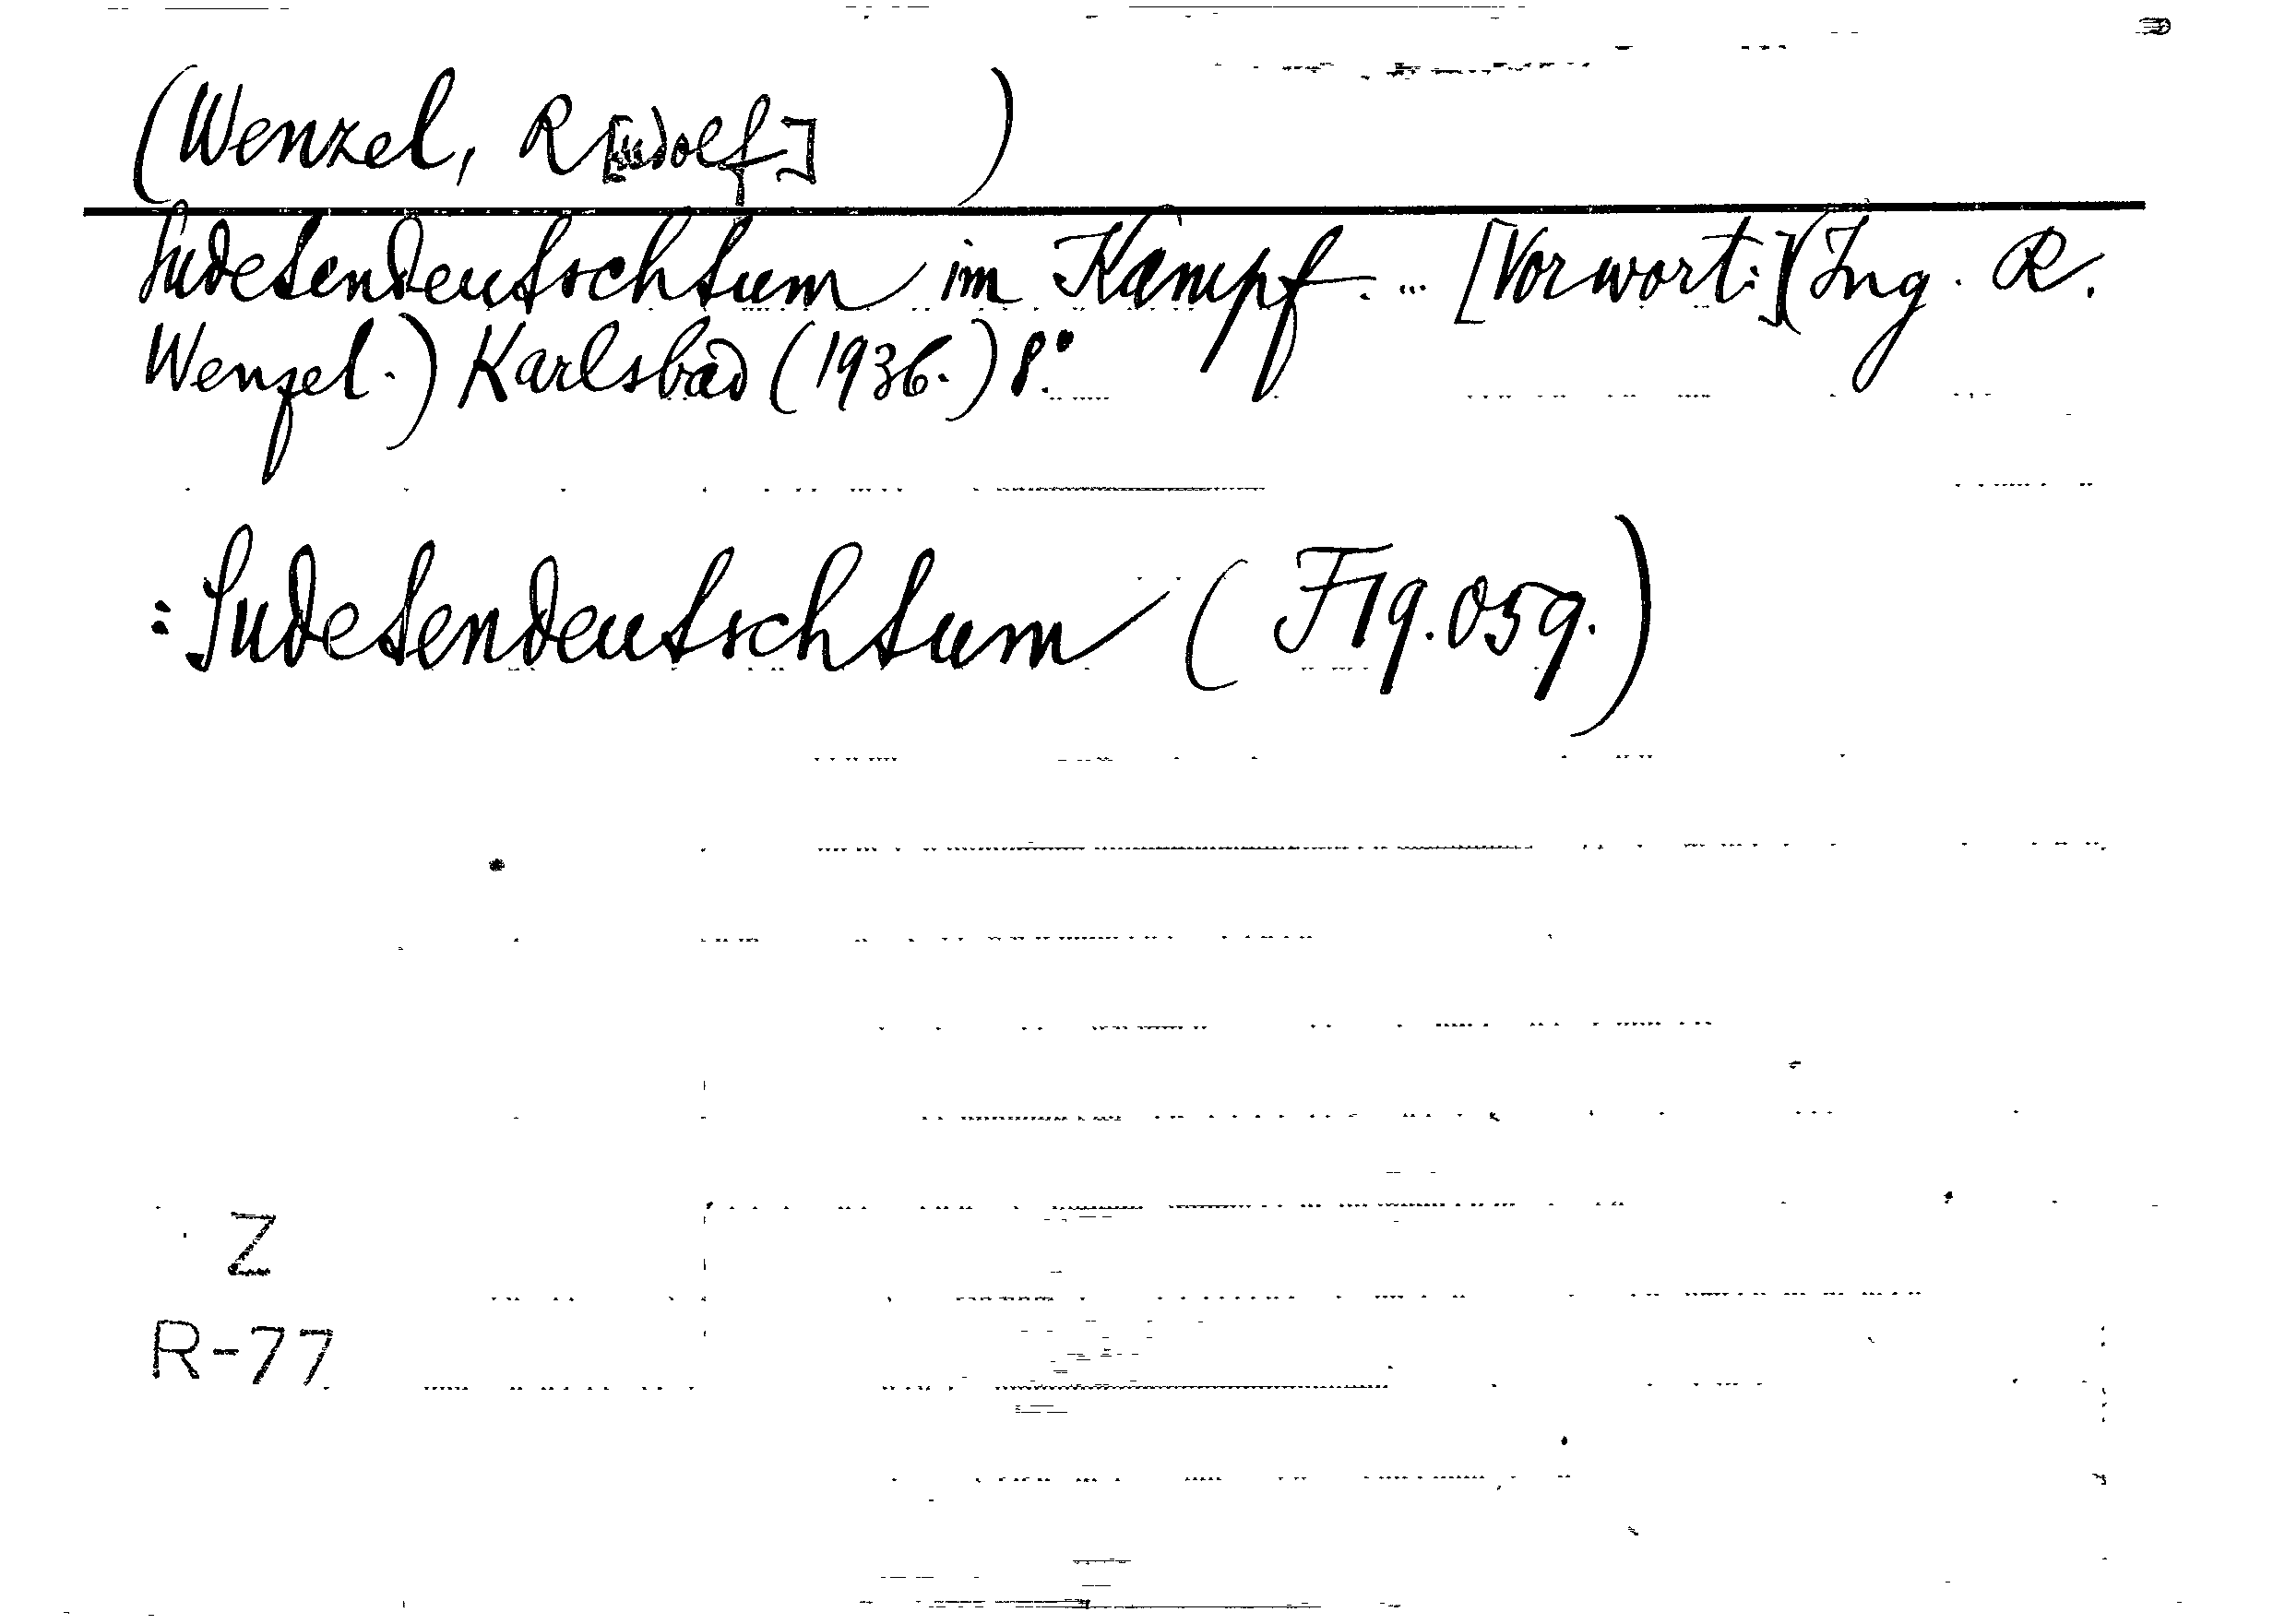 (Wenzel, R[udolf] )
Sudetendeutschtum im Kampf. ... [Vorwort:] (Ing. R.
Wenzel.) Karlsbad (1936.) 8.°
: Sudetendeutschtum ( F19.059.)
Z
R-77